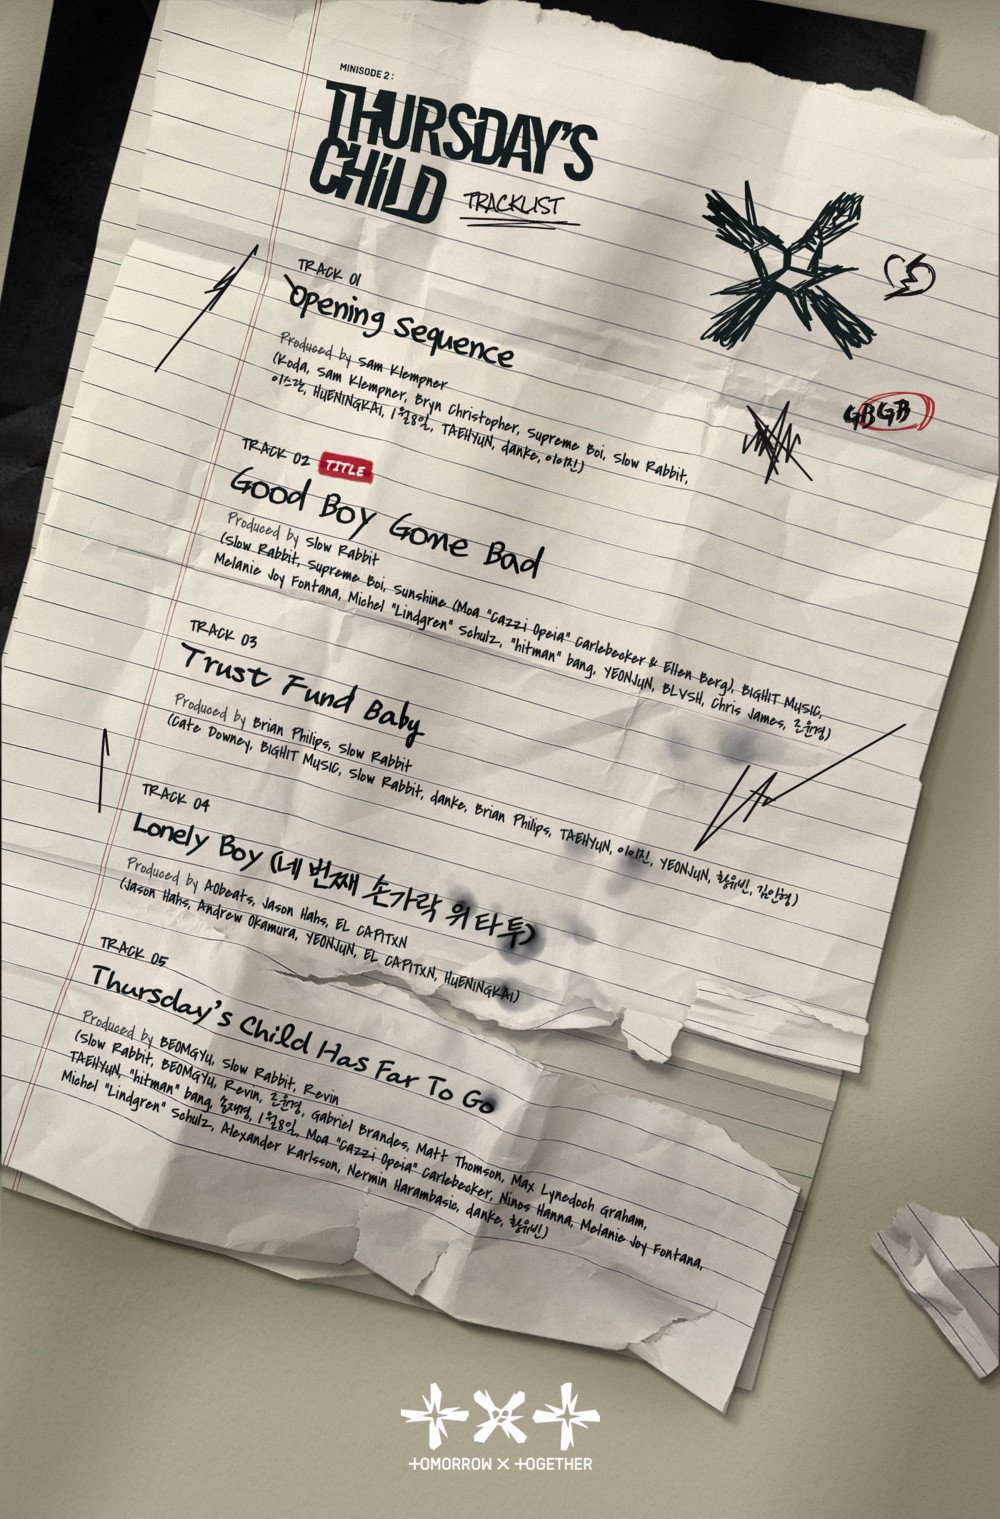 MINISODE 2:
THURSDAY'S
CHILD
TRACKLIST
GBGB
TRACK 01
Opening Sequence
Produced by Sam Klempner
(Koda, Sam Klempner, Bryn Christopher, Supreme Boi, Slow Rabbit,
이스란, HUENINGKAI, 1월8일, TAEHYUN, danke, 이이진)
TRACK 02 TITLE
Good Boy Gone Bad
Produced by Slow Rabbit
(Slow Rabbit, Supreme Boi, Sunshine (Moa "Cazzi Opeia" Carlebecker & Ellen Berg), BIGHIT MUSIC,
Melanie Joy Fontana, Michel "Lindgren" Schulz, "hitman" bang, YEONJUN, BLVSH, Chris James, 문윤경)
TRACK 03
Trust Fund Baby
Produced by Brian Philips, Slow Rabbit
(Cate Downey, BIGHIT MUSIC, Slow Rabbit, danke, Brian Philips, TAEHYUN, 이이진, YEONJUN, 황유빈, 김인형)
TRACK 04
Lonely Boy (네 번째 손가락 위 타투)
Produced by AObeats, Jason Hahs, EL CAPITXN
(Jason Hahs, Andrew Okamura, YEONJUN, EL CAPITXN, HUENINGKAI)
TRACK 05
Thursday's Child Has Far To Go
Produced by BEOMGYU, Slow Rabbit, Revin
(Slow Rabbit, BEOMGYU, Revin, 문윤경, Gabriel Brandes, Matt Thomson, Max Lynedoch Graham,
TAEHYUN, "hitman" bang, 송재경, 1월8일, Moa "Cazzi Opeia" Carlebecker, Ninos Hanna, Melanie Joy Fontana,
Michel "Lindgren" Schulz, Alexander Karlsson, Nermin Harambasic, danke, 황유빈)
TOMORROW X TOGETHER